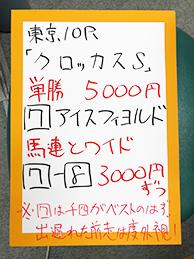 東京10R
「クロッカスS」
単勝 5000円
7 アイスフィヨルド
馬連とワイド
7-8 3000円
ずつ
※7は千四がベストのはず
出遅れた前走は度外視!